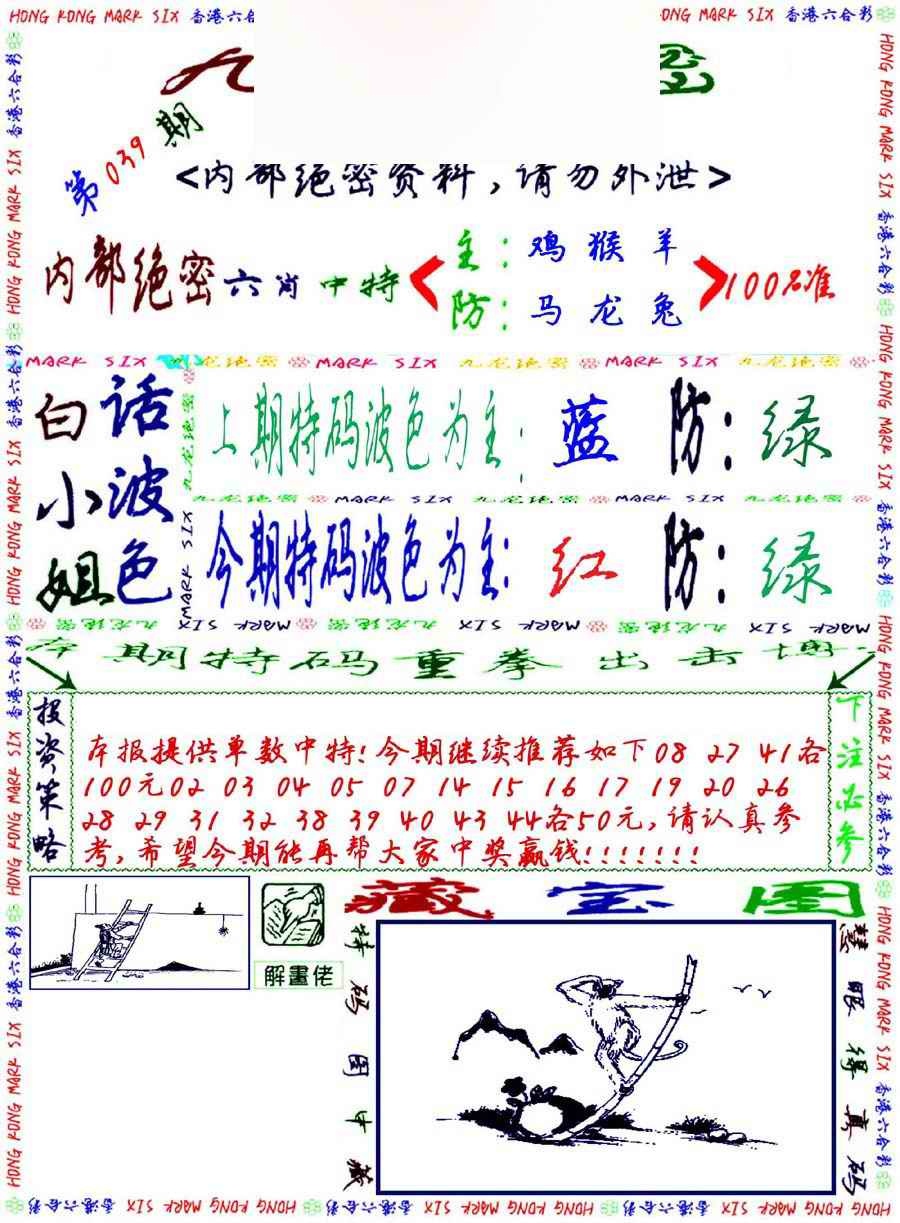 HONG KONG MARK SIX 香港六合彩
ONG MARK SIX 香港六合彩
九
第039期
<内部绝密资料，请勿外泄>
内部绝密六肖中特
主：鸡猴羊
防：马龙兔
100%准
MARK SIX 九龙绝密 MARK SIX 九龙绝密 MARK SIX 九龙绝密
白话
小波
姐色
上期特码波色为主：蓝 防：绿
九龙绝密 MARK SIX 九龙绝密 MARK SIX 九龙绝密
今期特码波色为主：红 防：绿
九龙绝密 MARK SIX 九龙绝密 MARK SIX 九龙绝密 MARK SIX
本期特码重拳出击
投资策略
本报提供单数中特!今期继续推荐如下08 27 41各
100元02 03 04 05 07 14 15 16 17 19 20 26
28 29 31 32 38 39 40 43 44各50元,请认真参
考,希望今期能再帮大家中奖赢钱!!!!!!!
下注必参
解畫佬
藏宝图
特码图中藏
慧眼得真码
HONG KONG MARK SIX 香港六合彩